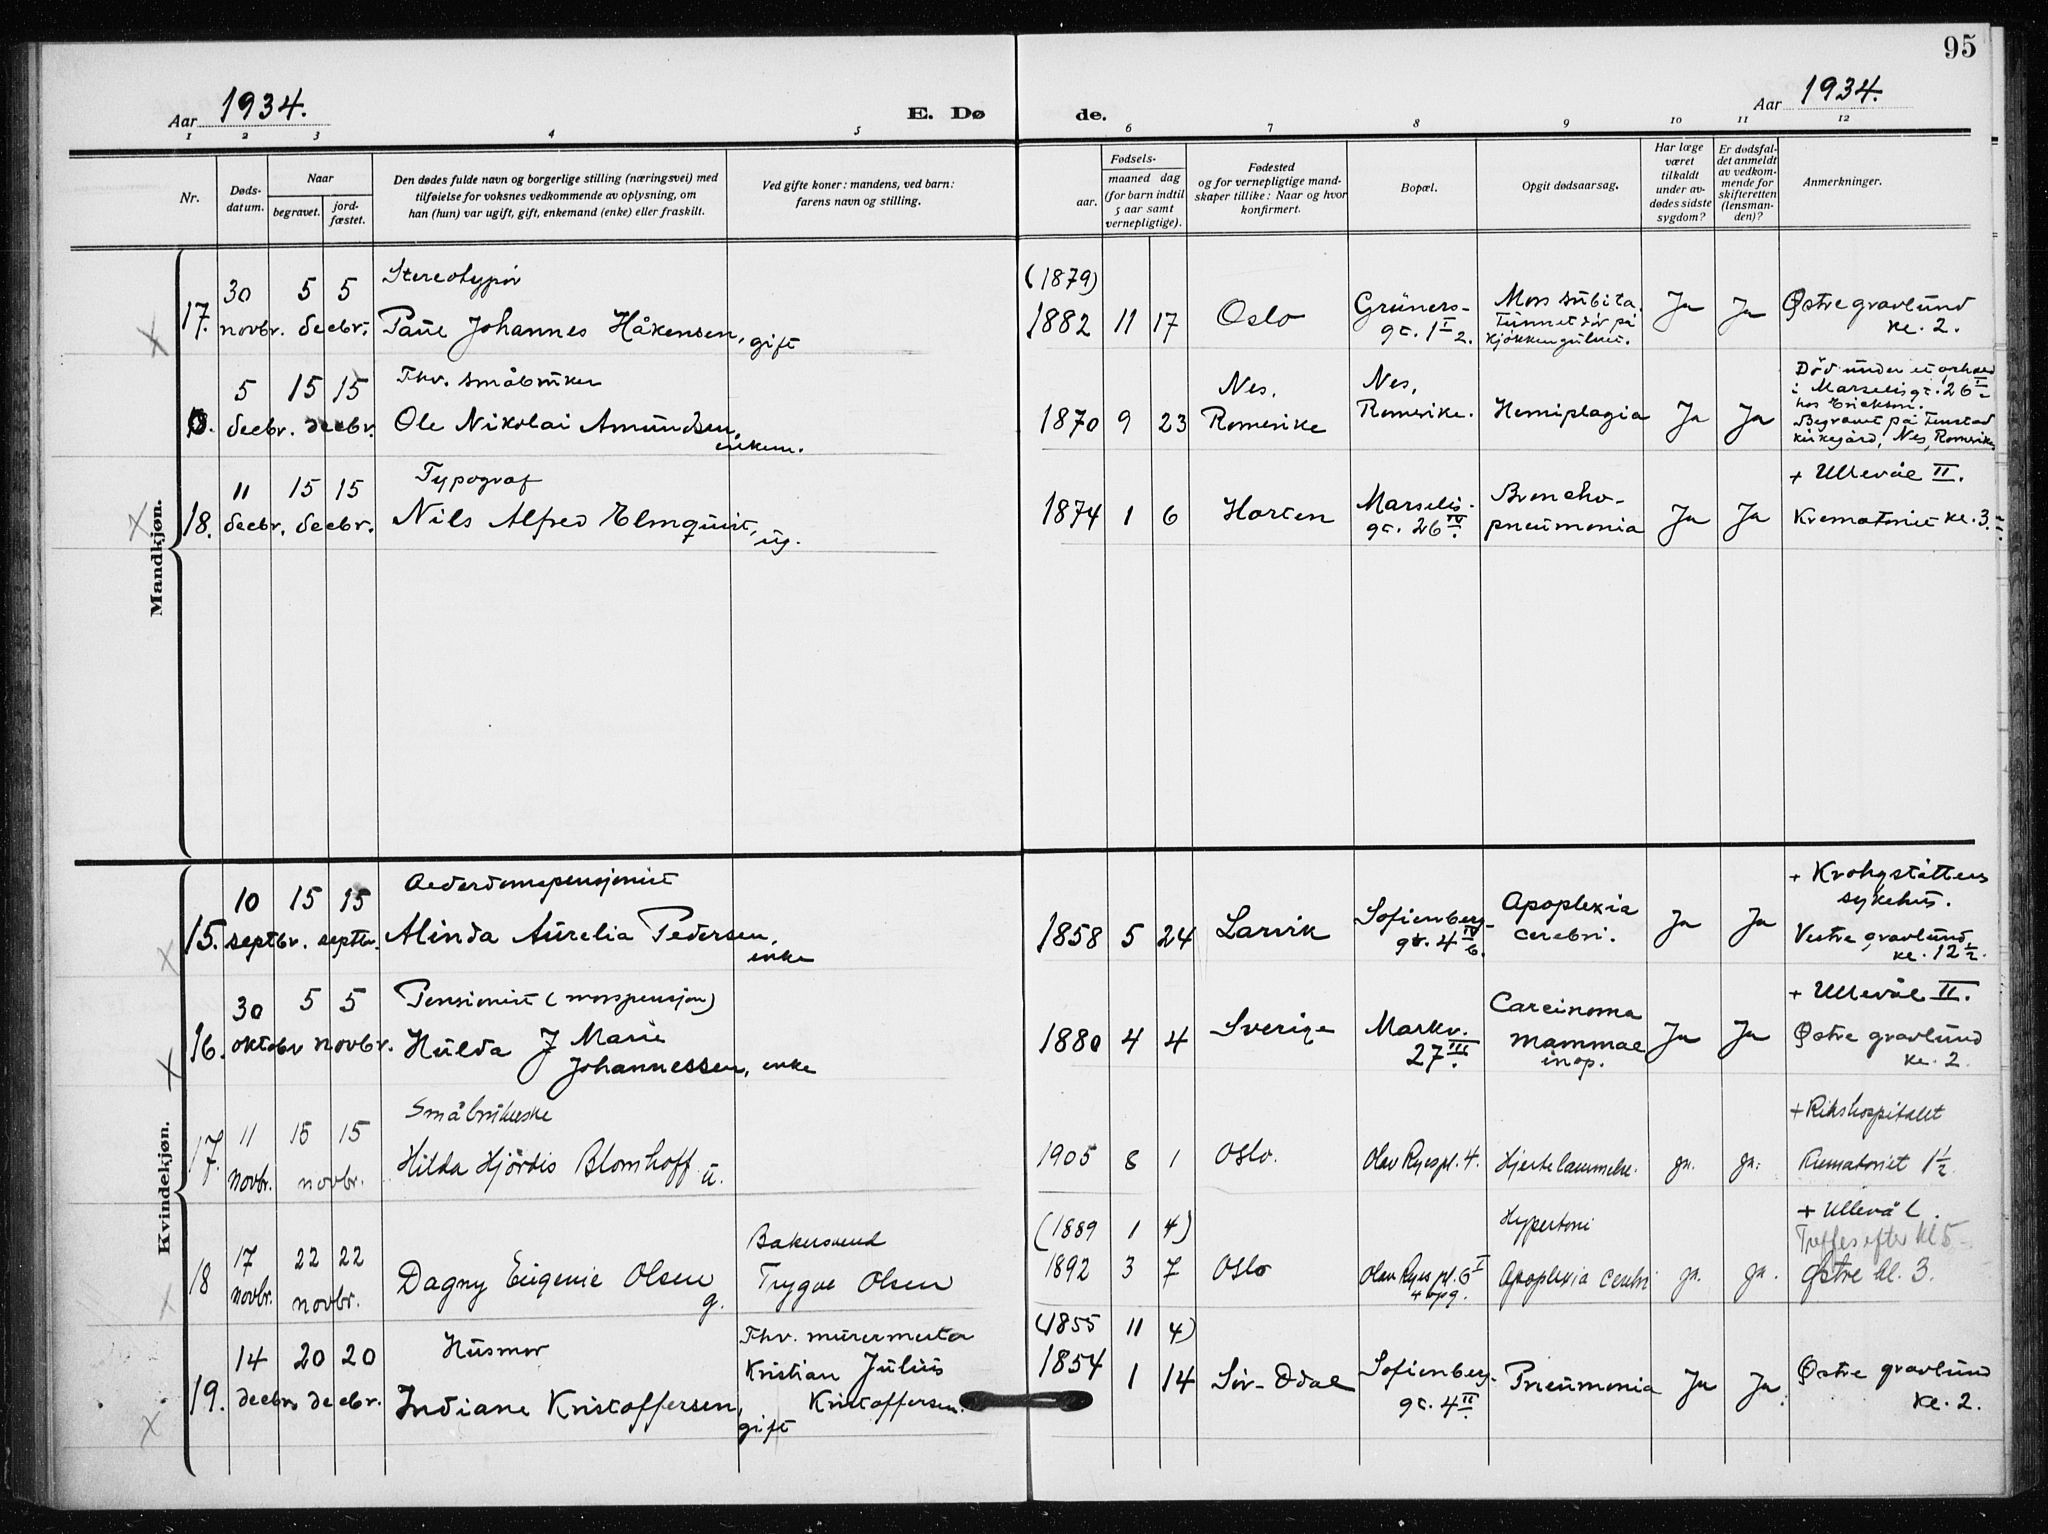 95
Aar 1934.
E. Dø
de.
Aar 1934.
1 2 3 4 5 6 7 8 9 10 11 12
Nr.
Døds-
datum.
Naar
begravet.
jord-
fæstet.
Den dødes fulde navn og borgerlige stilling (næringsvei) med
tilføielse for voksnes vedkommende av oplysning, om
han (hun) var ugift, gift, enkemand (enke) eller fraskilt.
Ved gifte koner: mandens, ved barn:
farens navn og stilling.
Fødsels-
aar.
maaned dag
(for barn indtil
5 aar samt
vernepligtige).
Fødested
og for vernepligtige mand-
skaper tillike: Naar og hvor
konfirmert.
Bopæl.
Opgit dødsaarsag.
Har læge
været
tilkaldt
under av-
dødes sidste
sygdom?
Er dødsfal-
det anmeldt
av vedkom-
mende for
skifteretten
(lensman-
den)?
Anmerkninger.
Mandkjøn.
17.
30
novbr.
5 5
decbr.
Stereotypør
Paul Johannes Håkensen, gift
(1879)
1882 11 17
Oslo
Grüners-
gt. 1 I 2.
Mors subita.
Funnet død på
kjøkkengulvet.
Ja Ja
Østre gravlund
kl. 2.
5
decbr.
15 15
decbr.
Fhv. småbruker
Ole Nikolai Amundsen,
enkem.
1870 9 23
Nes,
Romerike
Nes,
Romerike.
Hemiplagia
Ja Ja
Död under et ophold
i Marselisgt. 26 I
hos Erickson.
Begravet på Fenstad
kirkegård, Nes, Romerike
18.
11
decbr.
15 15
decbr.
Typograf
Nils Alfred Elmquist,
ug.
1874 1 6
Horten
Marselis-
gt. 26 IV.
Broncho-
pneumonia
Ja Ja
+ Ullevål II.
Krematoriet kl. 3.
Kvindekjøn.
15.
10
septbr.
15 15
septbr.
Alderdomspensjonist
Alinda Aurelia Pedersen,
enke
1858 5 24
Larvik
Sofienberg-
gt. 4 IV 6.
Apoplexia
cerebri.
Ja Ja
+ Krohgstøttens
sykehus.
Vestre gravlund,
kl. 12 1/2.
16.
30
oktobr
5 5
novbr.
Pensionist (morspensjon)
Hulda J Marie
Johannessen, enke
1880 4 4
Sverige
Markv.
27 III.
Carcinoma
mammae
inop.
Ja Ja
+ Ullevål II.
Østre gravlund
kl. 2.
17.
11
novbr.
15 15
novbr.
Hilda Hjördis Blomhoff u.
1905 8 1
Oslo.
Olav Ryespl. 4.
Hjertelammelse.
ja. ja.
+ Rikshospitalet
Krematoriet 1 1/2.
18
17
novbr.
22 22
novbr.
Dagny Eugenie Olsen
g.
Bakersvend
Trygve Olsen
(1889 1 4)
1892 3 7
Oslo
Olav Ryes pl. 6 I
4 opg.
Hypertoni
Apoplexia cerebri
ja. ja.
+ Ullevål.
Treffes efter kl 5
Østre kl. 3.
19.
14
decbr.
20 20
decbr.
Husmor
Indiane Kristoffersen,
gift
Fhv. murermester
Kristian Julius
Kristoffersen.
(1855 11 4)
1854 1 14
Sør-Odal
Sofienberg-
gt. 4 II.
Pneumonia
Ja Ja.
Østre gravlund
kl. 2.